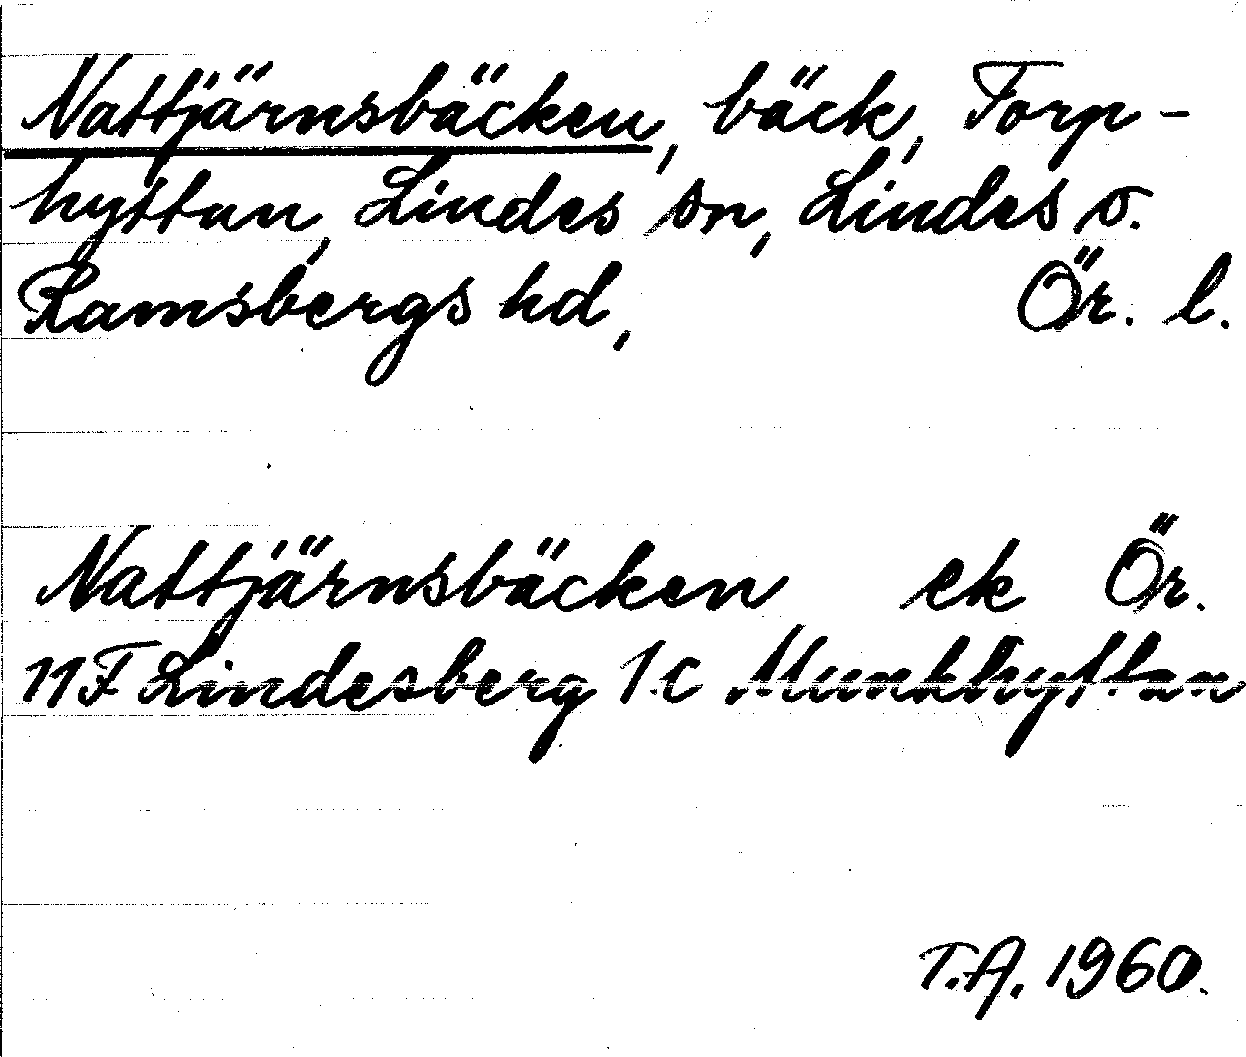 Nattjärnsbäcken, bäck, Torp-
hyttan, Lindes sn, Lindes o.
Ramsbergs hd, Ör. l.
Nattjärnsbäcken ek Ör.
11F Lindesberg 1c Munkhyttan
T.A. 1960.